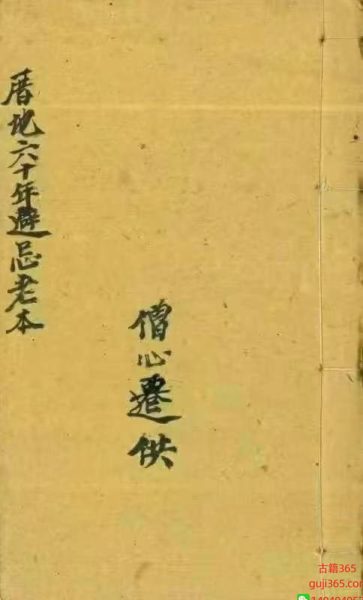 厝地六十年避忌老本
僧心遷供
古籍365
guji365.com